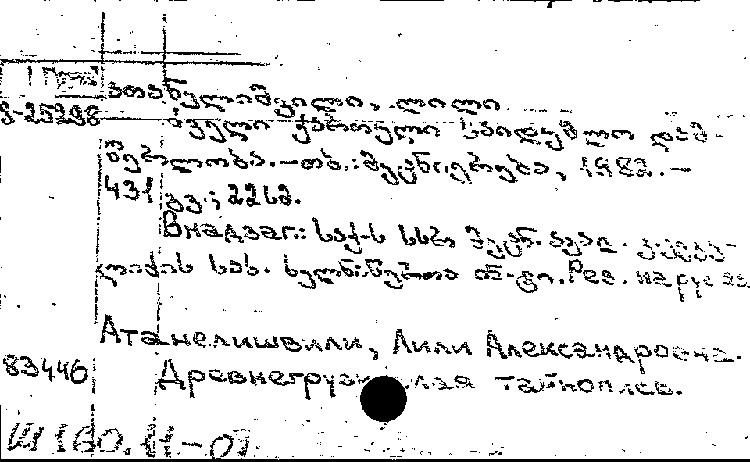 ათანელიშვილი, ლილი
გ-25298 ძველი ქართული საიდუმლო დამ-
წერლობა. – თბ.: მეცნიერება, 1982. –
431 გვ.; 22 სმ.
В надзаг.: საქ-ს სსრ მეცნ. აკად. კ. კეკე-
ლიძის სახ. ხელნაწერთა ინ-ტი. Рез. на рус яз
Атанелишвили, Лили Александровна.
83446 Древнегрузинская тайнопись.
Ш160.11-07